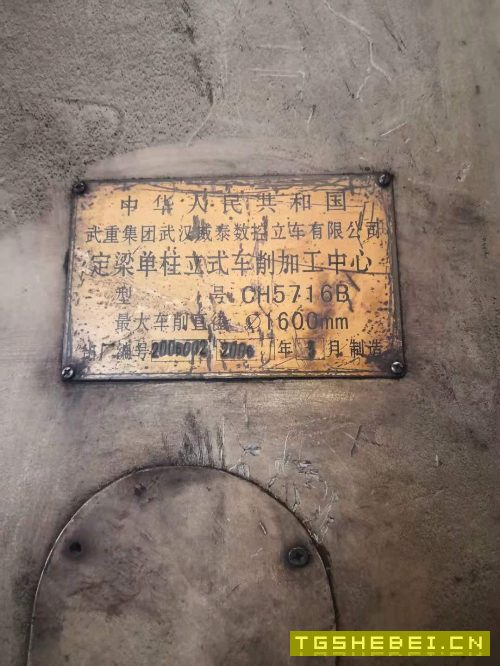 中华人民共和国
武重集团武汉威泰数控立车有限公司
定梁单柱立式车削加工中心
型 号 CH5716B
最大车削直径 Ø1600mm
出厂编号2006002 2006 年 3 月制造
TGSHEBEI.CN